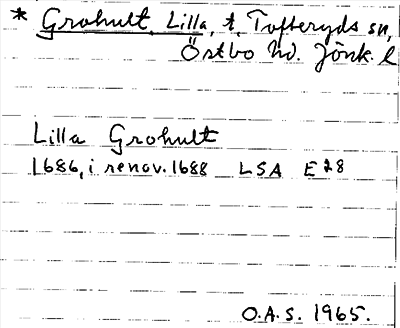 * Grohult, Lilla, t, Tofteryds sn,
Östbo hd. Jönk. l
Lilla Grohult
1686, i renov. 1688 LSA E 28
O.A.S. 1965.